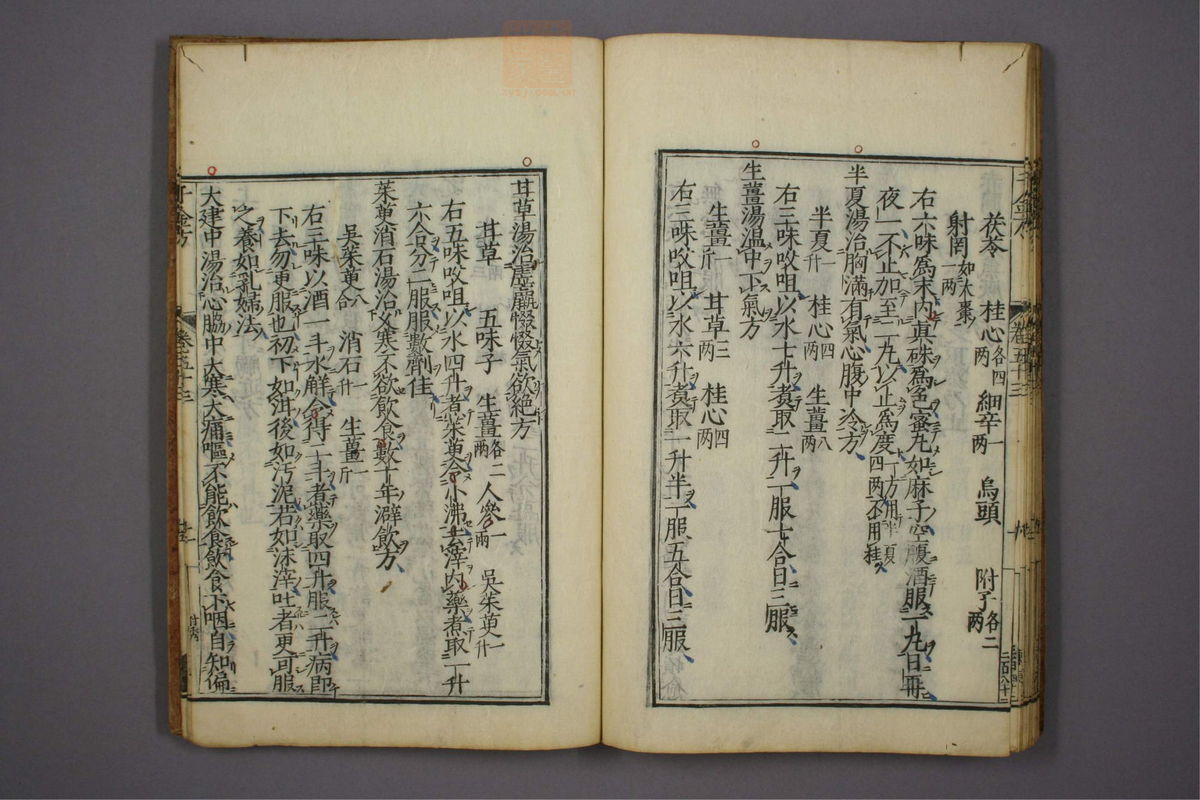 茯苓 桂心各四兩 細辛一兩 烏頭 附子各二兩
射罔如大棗一兩
右六味爲末內真硃爲色蜜丸如麻子空腹酒服一丸日再
夜一不止加至二丸以止爲度一方用半夏四兩不用桂
半夏湯治胸滿有氣心腹中冷方
半夏一升 桂心四兩 生薑八兩
右三味㕮咀以水七升煮取二升一服七合日三服
生薑湯溫中下氣方
生薑一斤 甘草三兩 桂心四兩
右三味㕮咀以水六升煮取一升半一服五合日三服
甘草湯治虛羸惙惙氣欲絕方
甘草 五味子 生薑各二兩 人參一兩 吳茱萸一升
右五味㕮咀以水四升煮茱萸令小沸去滓內藥煮取一升
六合分二服服數劑佳
茱萸消石湯治久寒不欲飲食數十年澼飲方
吳茱萸八合 消石一升 生薑一斤
右三味以酒一斗水解令得二斗煮藥取四升服二升病即
下去勿更服也初下如泔後如汚泥若如沫滓吐者更可服
之養如乳婦法
大建中湯治心脇中大寒大痛嘔不能飲食飲食下咽自知偏
千金方
卷之五十三